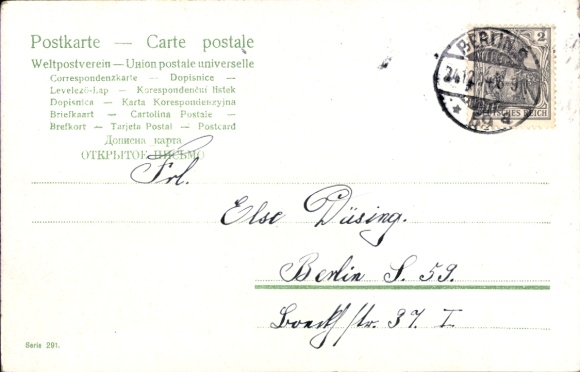 Postkarte — Carte postale
Weltpostverein — Union postale universelle
Correspondenzkarte — Dopisnice —
Levelező-Lap — Korespondenční lístek
Dopisnica — Karta Korespondenzyjna
Briefkaart — Cartolina Postale —
Brefkort — Tarjeta Postal — Postcard
Дописна карта
ОТКРЫТОЕ ПИСЬМО
2
BERLIN S
DEUTSCHES REICH
Frl.
Else Düsing.
Berlin S. 59.
Boeckhstr. 37. I.
Serie 291.